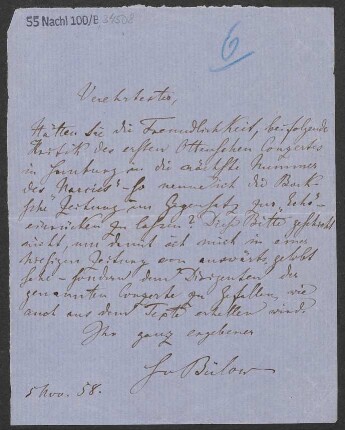 55 Nachl 100/B 39508
6
Verehrtester,
Hätten Sie die Freundlichkeit, beifolgende
Kritik des ersten Ottenschen Concertes
in Hamburg an die nächste Nummer
des
Zeitung im Gegensatz zur Echo
zu lassen? Diese Bitte geschieht
nicht, um damit ich mich in einer
hiesigen Zeitung von auswärts gelobt
sehe – sondern dem Dirigenten der
genannten Concerte zu Gefallen, wie
auch aus dem Texte erhellen wird.
Ihr ganz ergebener
HvBülow
5 Nov. 58.